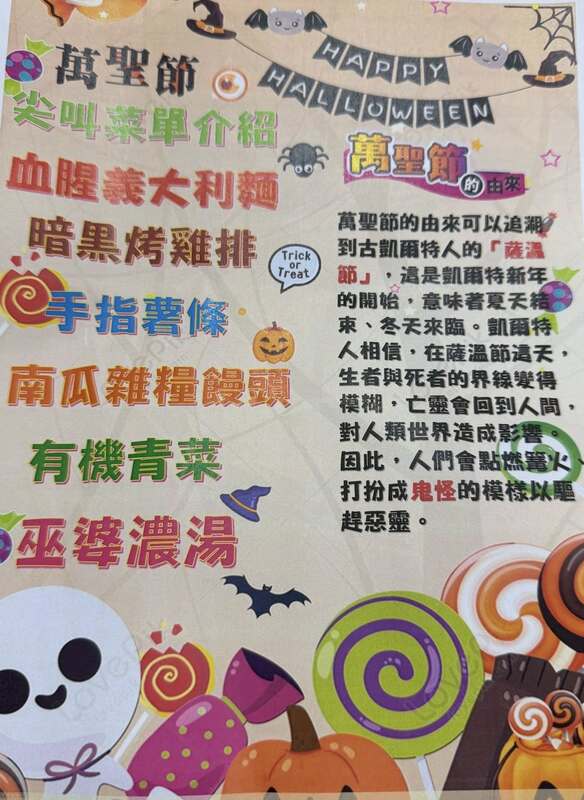 HAPPY
HALLOWEEN
萬聖節
尖叫菜單介紹
血腥義大利麵
暗黑烤雞排
手指薯條
南瓜雜糧饅頭
有機青菜
巫婆濃湯
Trick
or
Treat
萬聖節的由來
萬聖節的由來可以追溯
到古凱爾特人的「薩溫
節」，這是凱爾特新年
的開始，意味著夏天結
束、冬天來臨。凱爾特
人相信，在薩溫節這天，
生者與死者的界線變得
模糊，亡靈會回到人間，
對人類世界造成影響。
因此，人們會點燃篝火、
打扮成鬼怪的模樣以驅
趕惡靈。